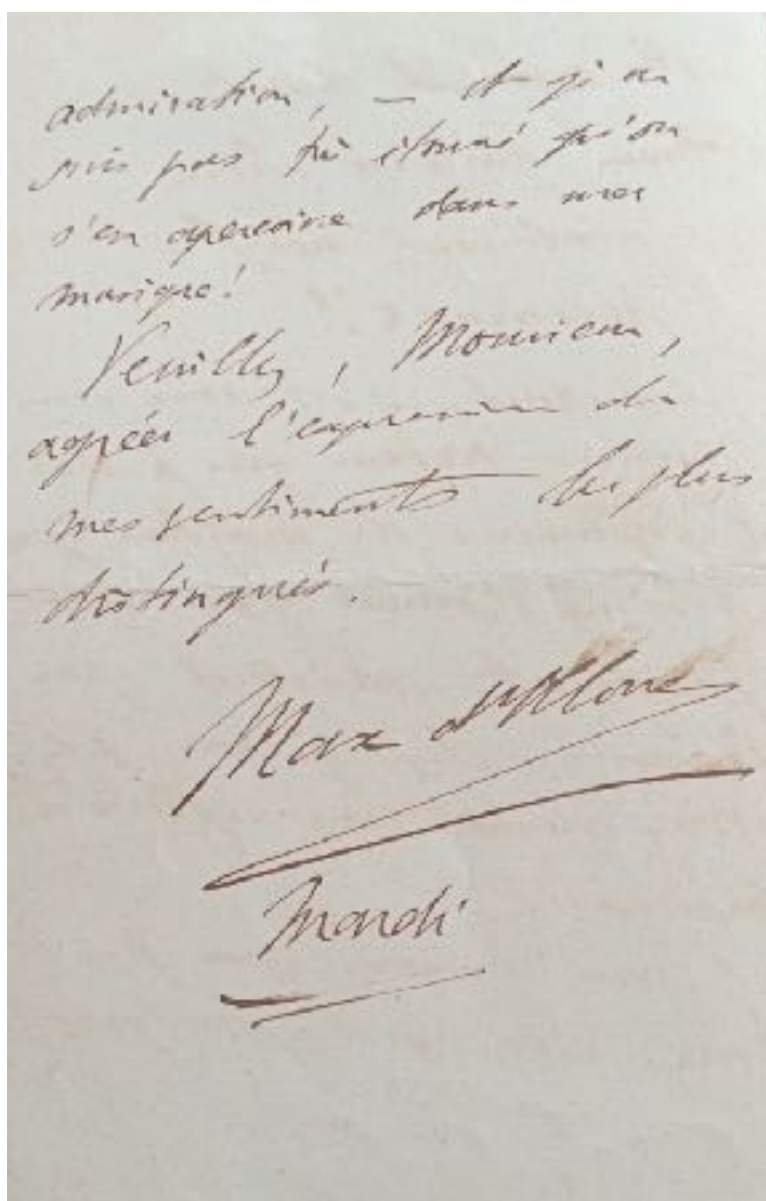 admiration, — et je ne
suis pas très étonné qu'on
s'en aperçoive dans ma
musique!
Veuillez, Monsieur,
agréer l'expression de
mes sentiments les plus
distingués.
Max d'Ollone
Mardi